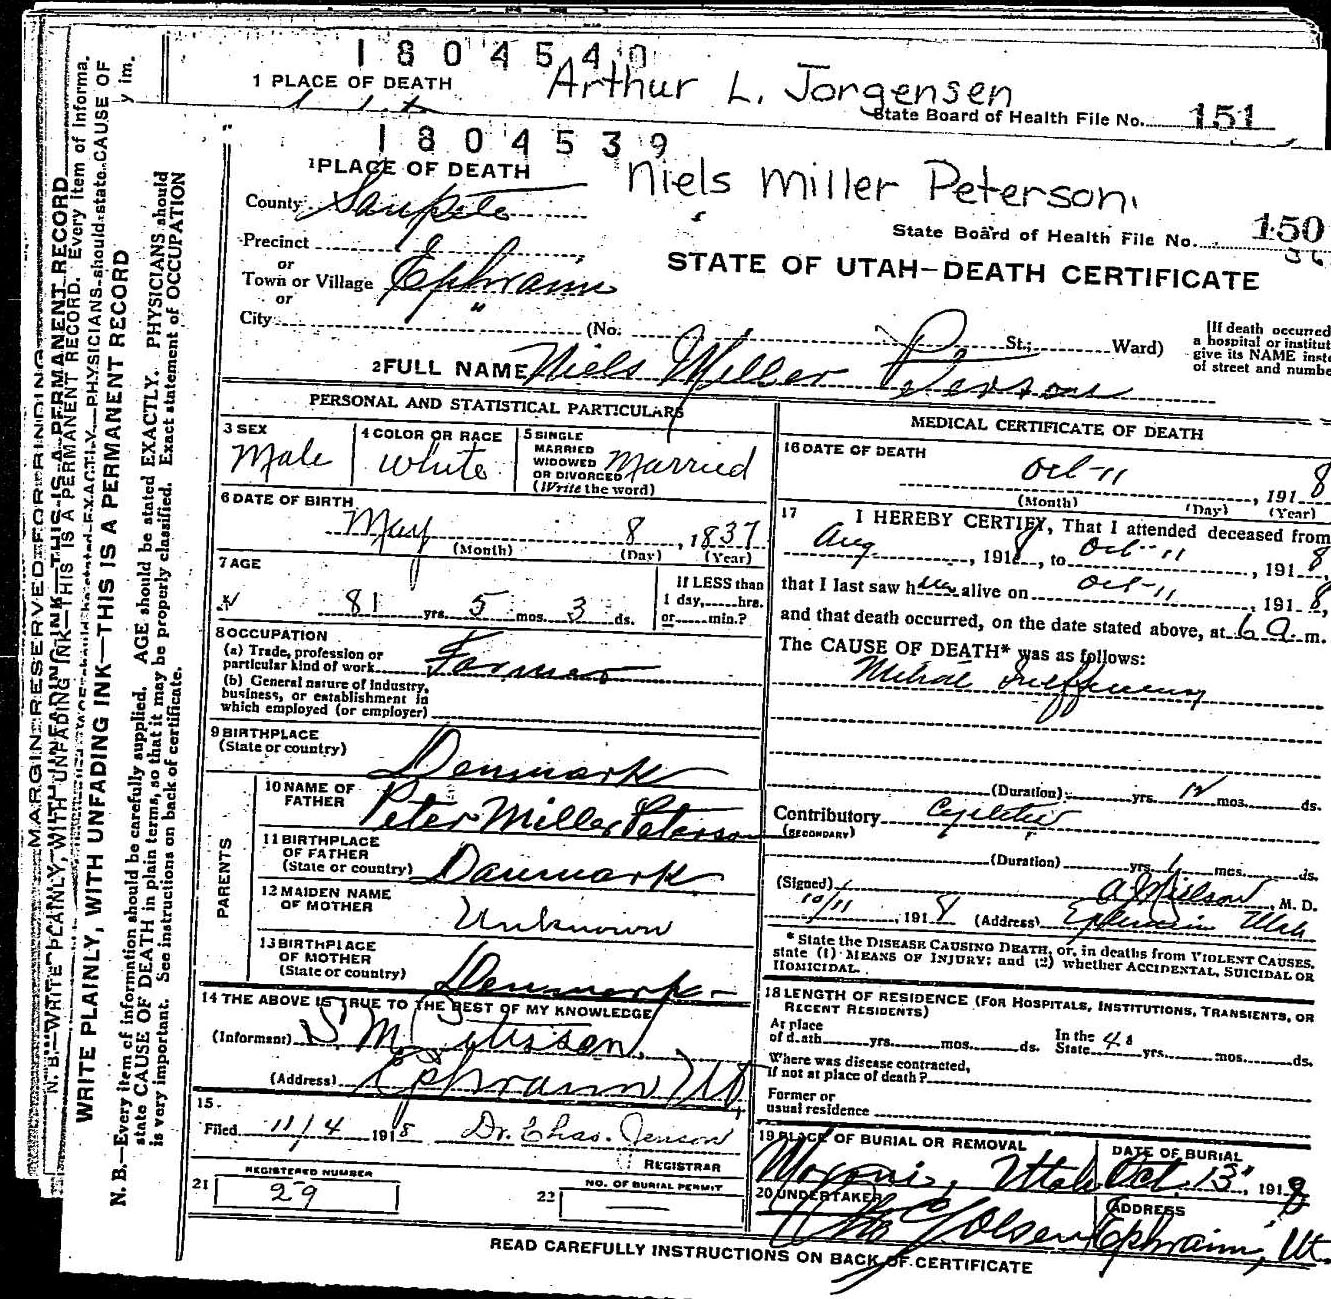 1804540
1 PLACE OF DEATH Arthur L. Jorgensen
State Board of Health File No. 151
1804539
1 PLACE OF DEATH Niels Miller Peterson.
County Sanpete
State Board of Health File No. 150
Precinct
or
Town or Village Ephraim
or
City (No. St.; Ward)
STATE OF UTAH—DEATH CERTIFICATE
[If death occurred
a hospital or institut
give its NAME inste
of street and numbe
2 FULL NAME Niels Miller Peterson
PERSONAL AND STATISTICAL PARTICULARS
3 SEX
Male
4 COLOR OR RACE
White
5 SINGLE
MARRIED
WIDOWED
OR DIVORCED
(Write the word)
Married
6 DATE OF BIRTH
May 8, 1837
(Month) (Day) (Year)
7 AGE
81 yrs. 5 mos. 3 ds.
If LESS than
1 day, hrs.
or min.?
8 OCCUPATION
(a) Trade, profession or
particular kind of work Farmer
(b) General nature of industry,
business, or establishment in
which employed (or employer)
9 BIRTHPLACE
(State or country) Denmark
PARENTS
10 NAME OF
FATHER Peter Miller Peterson
11 BIRTHPLACE
OF FATHER
(State or country) Danmark
12 MAIDEN NAME
OF MOTHER Unknown
13 BIRTHPLACE
OF MOTHER
(State or country) Denmark
14 THE ABOVE IS TRUE TO THE BEST OF MY KNOWLEDGE
(Informant) S. M. Peterson,
(Address) Ephraim Ut
15
Filed 11/4 1918 Dr. Chas. Jenson
REGISTRAR
REGISTERED NUMBER
21 29
NO. OF BURIAL PERMIT
22
MEDICAL CERTIFICATE OF DEATH
16 DATE OF DEATH
Oct 11, 1918
(Month) (Day) (Year)
17 I HEREBY CERTIFY, That I attended deceased from
Aug, 1918, to Oct 11, 1918,
that I last saw him alive on Oct 11, 1918,
and that death occurred, on the date stated above, at 6 a m.
The CAUSE OF DEATH* was as follows:
(Duration) yrs. mos. ds.
Contributory
(SECONDARY)
(Duration) yrs. 1 mos. ds.
(Signed) M. D.
10/11, 1918 (Address) Ephraim Utah
* State the DISEASE CAUSING DEATH, or, in deaths from VIOLENT CAUSES,
state (1) MEANS OF INJURY; and (2) whether ACCIDENTAL, SUICIDAL OR
HOMICIDAL.
18 LENGTH OF RESIDENCE (FOR HOSPITALS, INSTITUTIONS, TRANSIENTS, OR
RECENT RESIDENTS)
At place
of death yrs. mos. ds. In the
State yrs. mos. ds.
Where was disease contracted,
if not at place of death?
Former or
usual residence
19 PLACE OF BURIAL OR REMOVAL
Moroni, Utah
DATE OF BURIAL
Oct. 13, 1918
20 UNDERTAKER
Olsen
ADDRESS
Ephraim, Ut.
READ CAREFULLY INSTRUCTIONS ON BACK OF CERTIFICATE
MARGIN RESERVED FOR BINDING
N. B.—WRITE PLAINLY, WITH UNFADING INK—THIS IS A PERMANENT RECORD
WRITE PLAINLY, WITH UNFADING INK—THIS IS A PERMANENT RECORD
N. B.—Every item of information should be carefully supplied. AGE should be stated EXACTLY. PHYSICIANS should
state CAUSE OF DEATH in plain terms, so that it may be properly classified. Exact statement of OCCUPATION
is very important. See instructions on back of certificate.